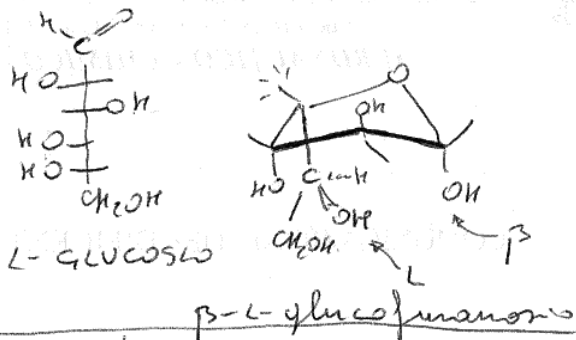 H O
C
HO
OH
HO
HO
CH₂OH
L-GLUCOSIO
O
OH
HO C H
OH
OH
CH₂OH
β
L
β-L-glucofuranosio